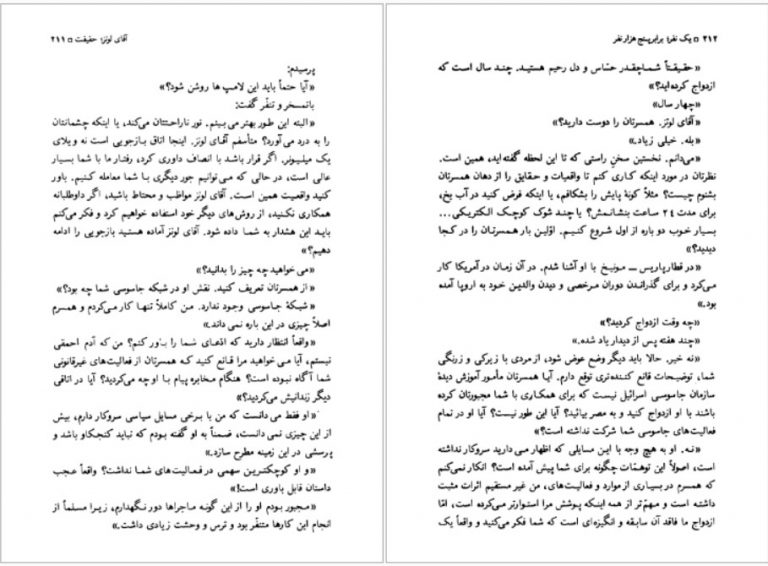 آقای لوتز؛ حقیقت □ ۲۱۱
پرسیدم:
«آیا حتماً باید این لامپ ها روشن شود؟»
باتمسخر و تنفّر گفت:
«البته این طور بهتر می‌بینم. نور ناراحتتان می‌کند، یا اینکه چشمانتان
را به درد می‌آورد؟ متأسفم آقای لوتز. اینجا اتاق بازجویی است نه ویلای
یک میلیونر. اگر قرار باشد با انصاف داوری کرد، رفتار ما با شما بسیار
عالی است، در حالی که می‌توانیم جور دیگری با شما معامله کنیم. باور
کنید واقعیت همین است. آقای لوتز مواظب و محتاط باشید، اگر داوطلبانه
همکاری نکنید، از روش‌های دیگر خود استفاده خواهیم کرد و فکر می‌کنم
باید این هشدار به شما داده شود. آقای لوتز آماده هستید بازجویی را ادامه
دهیم؟»
«می خواهید چه چیز را بدانید؟»
«از همسرتان تعریف کنید. نقش او در شبکه جاسوسی شما چه بود؟»
«شبکهٔ جاسوسی وجود ندارد. من کاملاً تنها کار می‌کردم و همسرم
اصلاً چیزی در این باره نمی داند.»
«واقعاً انتظار دارید که ادّعای شما را باور کنم؟ من که آدم احمقی
نیستم، آیا می خواهید مرا قانع کنید که همسرتان از فعالیت‌های غیرقانونی
شما آگاه نبوده است؟ هنگام مخابره پیام با او چه می‌کردید؟ آیا در اتاقی
دیگر زندانیش می‌کردید؟»
«او فقط می دانست که من با برخی مسایل سیاسی سروکار دارم، بیش
از این چیزی نمی دانست، ضمناً به او گفته بودم که نباید کنجکاو باشد و
پرسشی در این زمینه مطرح سازد.»
«و او کوچکترین سهمی در فعالیت‌های شما نداشت؟ واقعاً عجب
داستان قابل باوری است!»
«مجبور بودم او را از این گونه ماجراها دور نگهدارم، زیرا مسلماً از
انجام این کارها متنفّر بود و ترس و وحشت زیادی داشت.»
۲۱۲ □ یک نفر؛ برابر پنج هزار نفر
«حقیقتاً شما چقدر حسّاس و دل رحیم هستید. چند سال است که
ازدواج کرده‌اید؟»
«چهار سال»
«آقای لوتز. همسرتان را دوست دارید؟»
«بله. خیلی زیاد.»
«می‌دانم. نخستین سخن راستی که تا این لحظه گفته‌اید، همین است.
نظرتان در مورد اینکه کاری کنم تا واقعیات و حقایق را از دهان همسرتان
بشنوم چیست؟ مثلاً گونهٔ پایش را بشکافم، یا اینکه فرض کنید در آب یخ،
برای مدت ۲٤ ساعت بنشانمش؟ یا چند شوک کوچک الکتریکی...
بسیار خوب دو باره از اول شروع کنیم. اوّلین بار همسرتان را در کجا
دیدید؟»
«در قطار پاریس ــ مونیخ با او آشنا شدم. در آن زمان در آمریکا کار
می‌کرد و برای گذراندن دوران مرخصی و دیدن والدین خود به اروپا آمده
بود.»
«چه وقت ازدواج کردید؟»
«چند هفته پس از دیدار یاد شده.»
«نه خیر. حالا باید دیگر وضع عوض شود، از مردی با زیرکی و زرنگی
شما، توضیحات قانع کننده‌تری توقع دارم. آیا همسرتان مأمور آموزش دیدهٔ
سازمان جاسوسی اسرائیل نیست که برای همکاری با شما مجبورتان کرده
باشند با او ازدواج کنید و به مصر بیائید؟ آیا این طور نیست؟ آیا او در تمام
فعالیت‌های جاسوسی شما شرکت نداشته است؟»
«نه. او به هیچ وجه با این مسایلی که اظهار می دارید سروکار نداشته
است، اصولاً این توهّمات چگونه برای شما پیش آمده است؟ انکار نمی‌کنم
که همسرم در بسیاری از موارد و فعالیت‌های، من غیر مستقیم اثرات مثبت
داشته است و مهمّ‌تر از همه اینکه پوشش مرا استوارتر می‌کرده است، امّا
ازدواج ما فاقد آن سابقه و انگیزه‌ای است که شما فکر می‌کنید و واقعاً یک